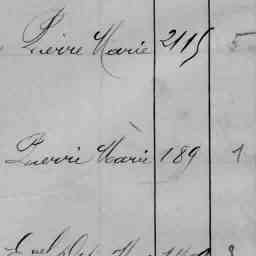 Pierre Marie 2115 5
Pierre Marie 189 1